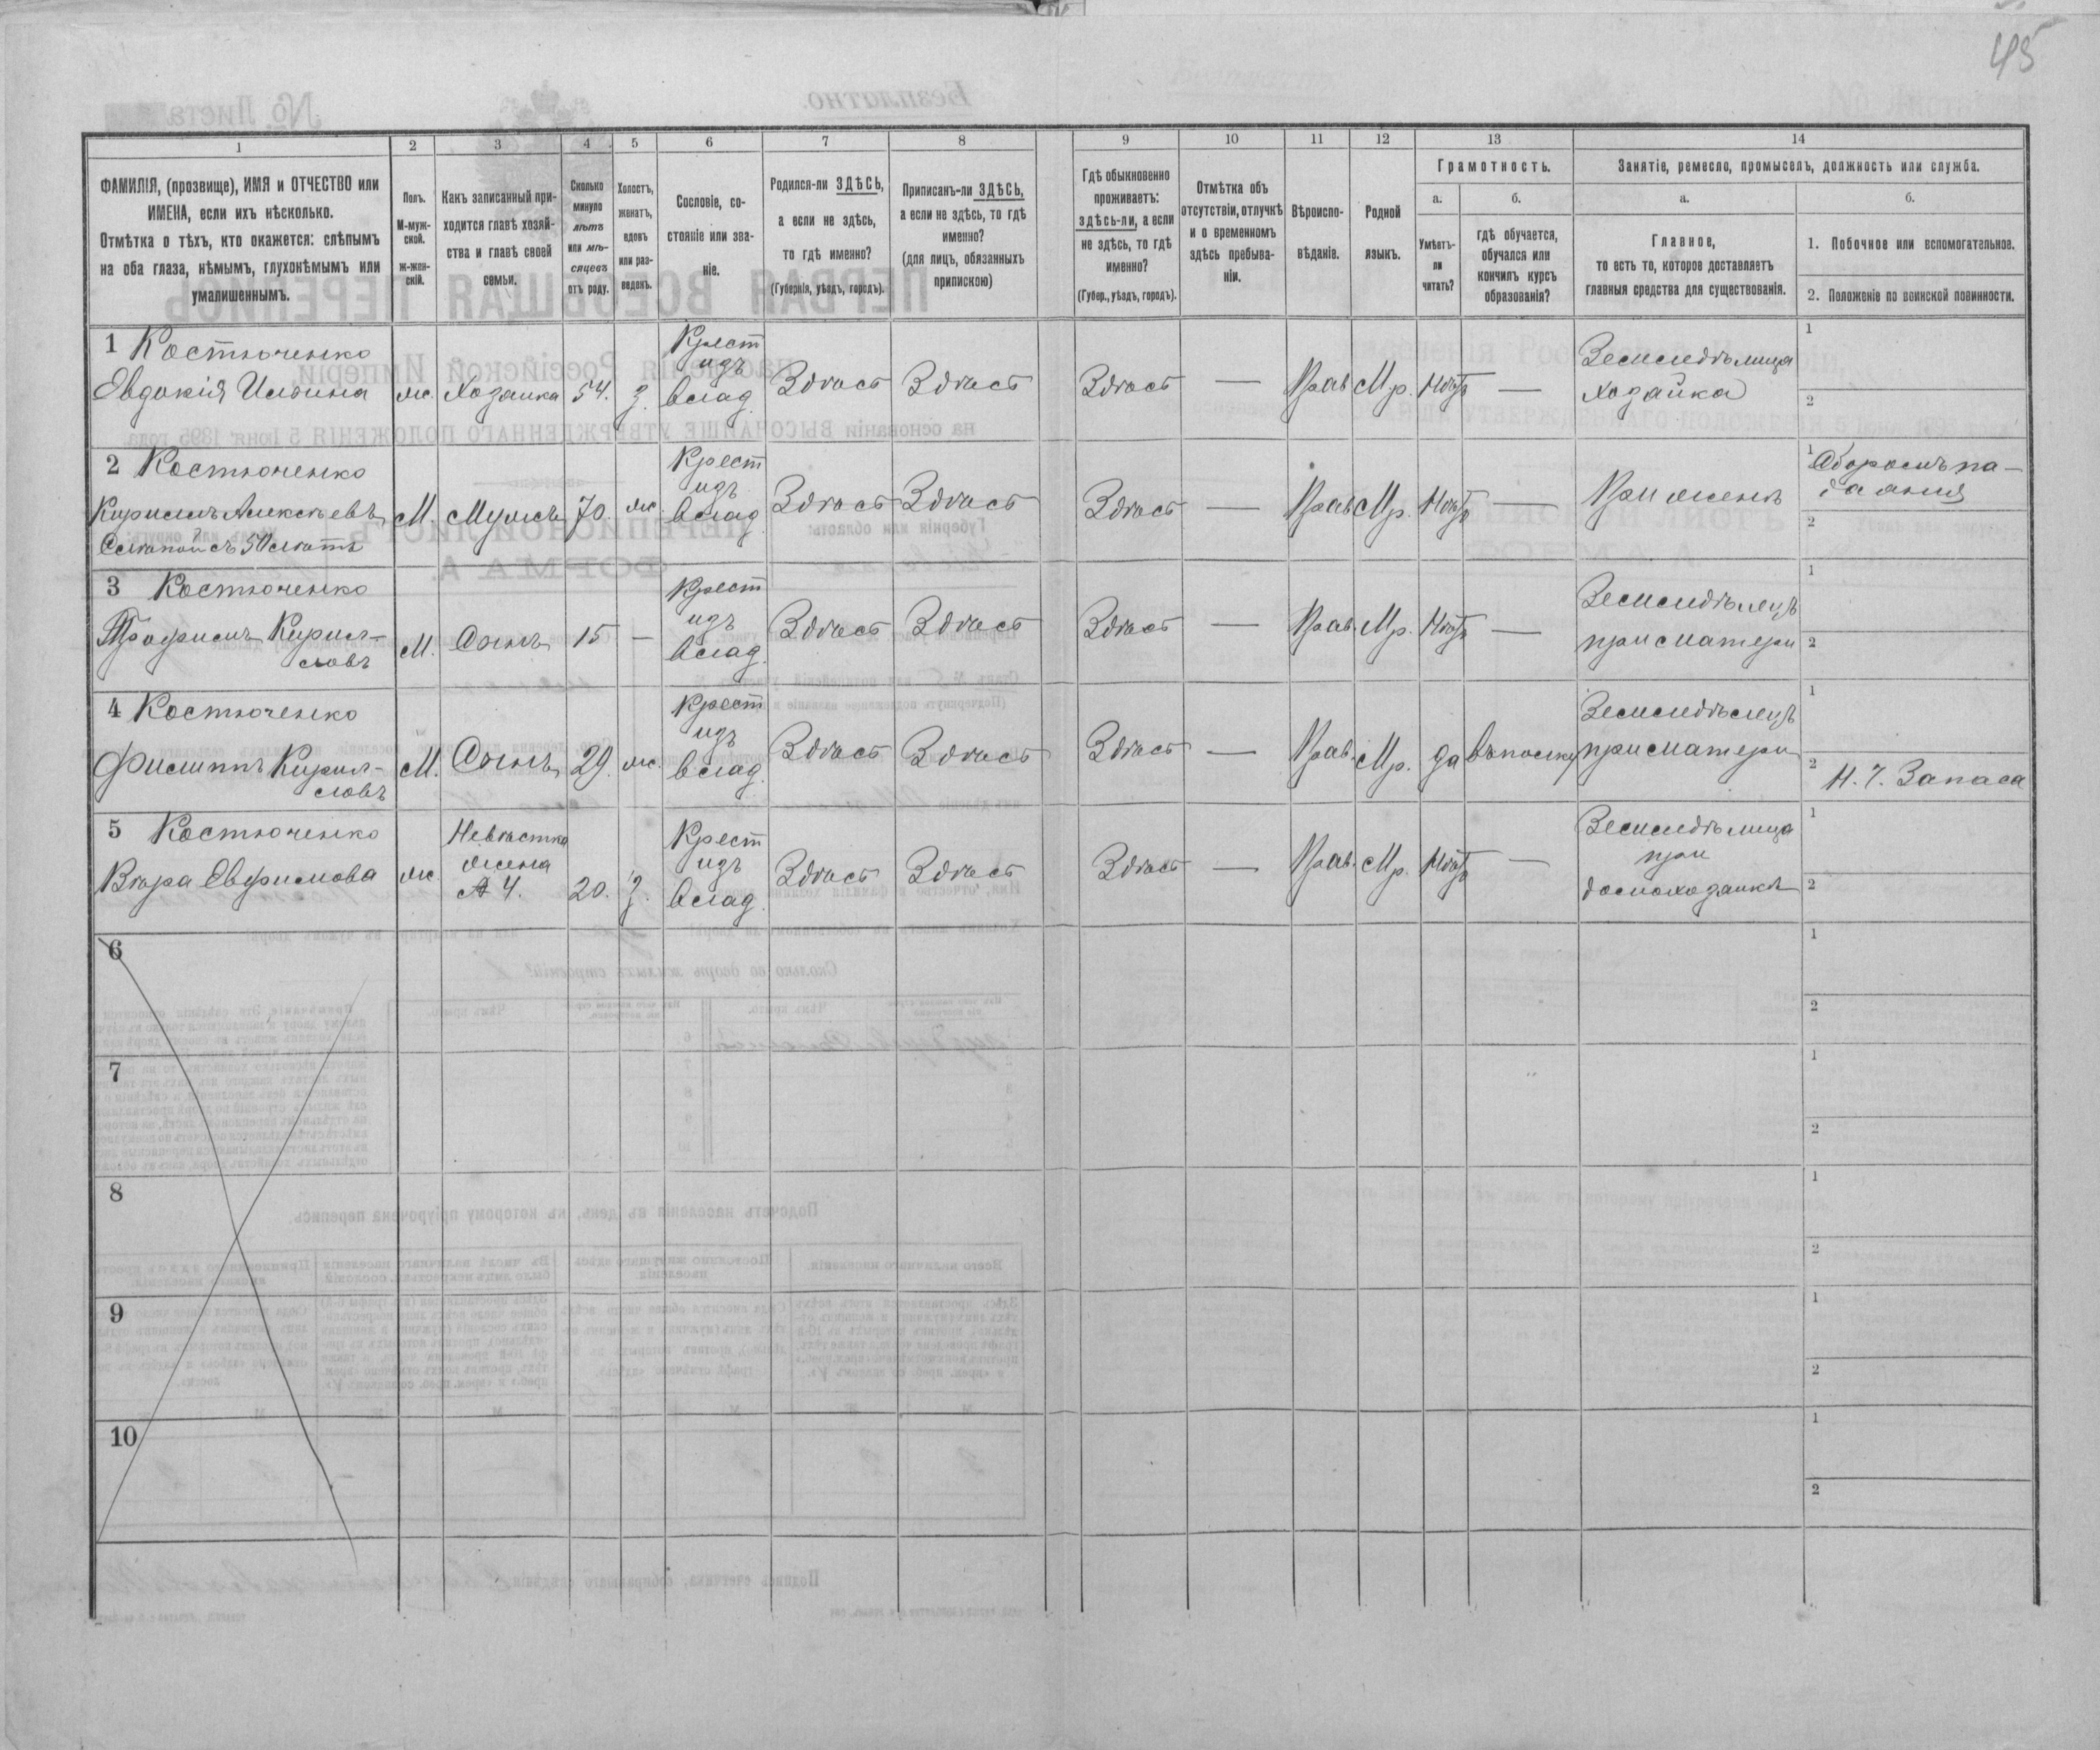 45
1 2 3 4 5 6 7 8 9 10 11 12 13 14
ФАМИЛІЯ, (прозвище), ИМЯ и ОТЧЕСТВО или
ИМЕНА, если ихъ нѣсколько.
Отмѣтка о тѣхъ, кто окажется: слѣпымъ
на оба глаза, нѣмымъ, глухонѣмымъ или
умалишеннымъ.
Полъ.
М-муж-
ской.
ж-жен-
скій.
Какъ записанный при-
ходится главѣ хозяй-
ства и главѣ своей
семьи.
Сколько
минуло
лѣтъ
или мѣ-
сяцевъ
отъ роду.
Холостъ,
женатъ,
вдовъ
или раз-
веденъ.
Сословіе, со-
стояніе или зва-
ніе.
Родился-ли ЗДѢСЬ,
а если не здѣсь,
то гдѣ именно?
(Губернія, уѣздъ, городъ).
Приписанъ-ли ЗДѢСЬ,
а если не здѣсь, то гдѣ
именно?
(для лицъ, обязанныхъ
припискою)
Гдѣ обыкновенно
проживаетъ:
здѣсь-ли, а если
не здѣсь, то гдѣ
именно?
(Губер., уѣздъ, городъ).
Отмѣтка объ
отсутствіи, отлучкѣ
и о временномъ
здѣсь пребыва-
ніи.
Вѣроиспо-
вѣданіе.
Родной
языкъ.
Грамотность.
а.
Умѣетъ-
ли
читать?
б.
гдѣ обучается,
обучался или
кончилъ курсъ
образованія?
Занятіе, ремесло, промыселъ, должность или служба.
а.
Главное,
то есть то, которое доставляетъ
главныя средства для существованія.
б.
1. Побочное или вспомогательное.
2. Положеніе по воинской повинности.
1 Костюченко
Евдокія Ильина
ж. Хозяика 54. З.
Крест
изъ
влад.
Здѣсь Здѣсь Здѣсь — Прав. М.р. Нѣтъ —
Земледѣлица
хозайка
1
2
2 Костюченко
Кирилъ Алексѣевъ
Слѣпой съ 50 лѣтъ
М. Мужъ 70. ж.
Крест
изъ
влад.
Здѣсь Здѣсь Здѣсь — Прав М.р. Нѣтъ —
При женѣ
1 Сборомъ па-
даянія
2
3 Костюченко
Трофимъ Кирил-
ловъ
М. Сынъ 15 —
Крест
изъ
влад.
Здѣсь Здѣсь Здѣсь — Прав. М.р. Нѣтъ —
Земледѣлецъ
при матери
1
2
4 Костюченко
Филиппъ Кирил-
ловъ
М. Сынъ 29. ж.
Крест
изъ
влад.
Здѣсь Здѣсь Здѣсь — Прав. М.р. да въ полку
Земледѣлецъ
при матери
1
2 Н. Ч. Запаса
5 Костюченко
Вѣра Евфимова
ж.
Невѣстка
жена
4.
20. З.
Крест
изъ
влад.
Здѣсь Здѣсь Здѣсь — Прав. М.р. Нѣтъ —
Земледѣлица
при
домохозаикѣ
1
2
6
1
2
7
1
2
8
1
2
9
1
2
10
1
2